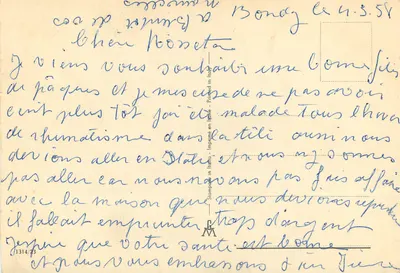 à Bientot de vos
nouvelles
Bondy le 4.3.58
Chère Rosseta
Je viens vous souhaiter une bonne fête
de pâques et je mescuse de ne pas avoir
ecrit plus tôt jai été malade tous lhiver
de rhumatisme dans la tête aussi nous
devions aller en Italie et nous ny sommes
pas aller car nous navons pas fais affaire
avec la maison que nous devions reprendre
il fallait emprunter trop dargent
Jespère que votre santé est bonne
et nous vous embrassons